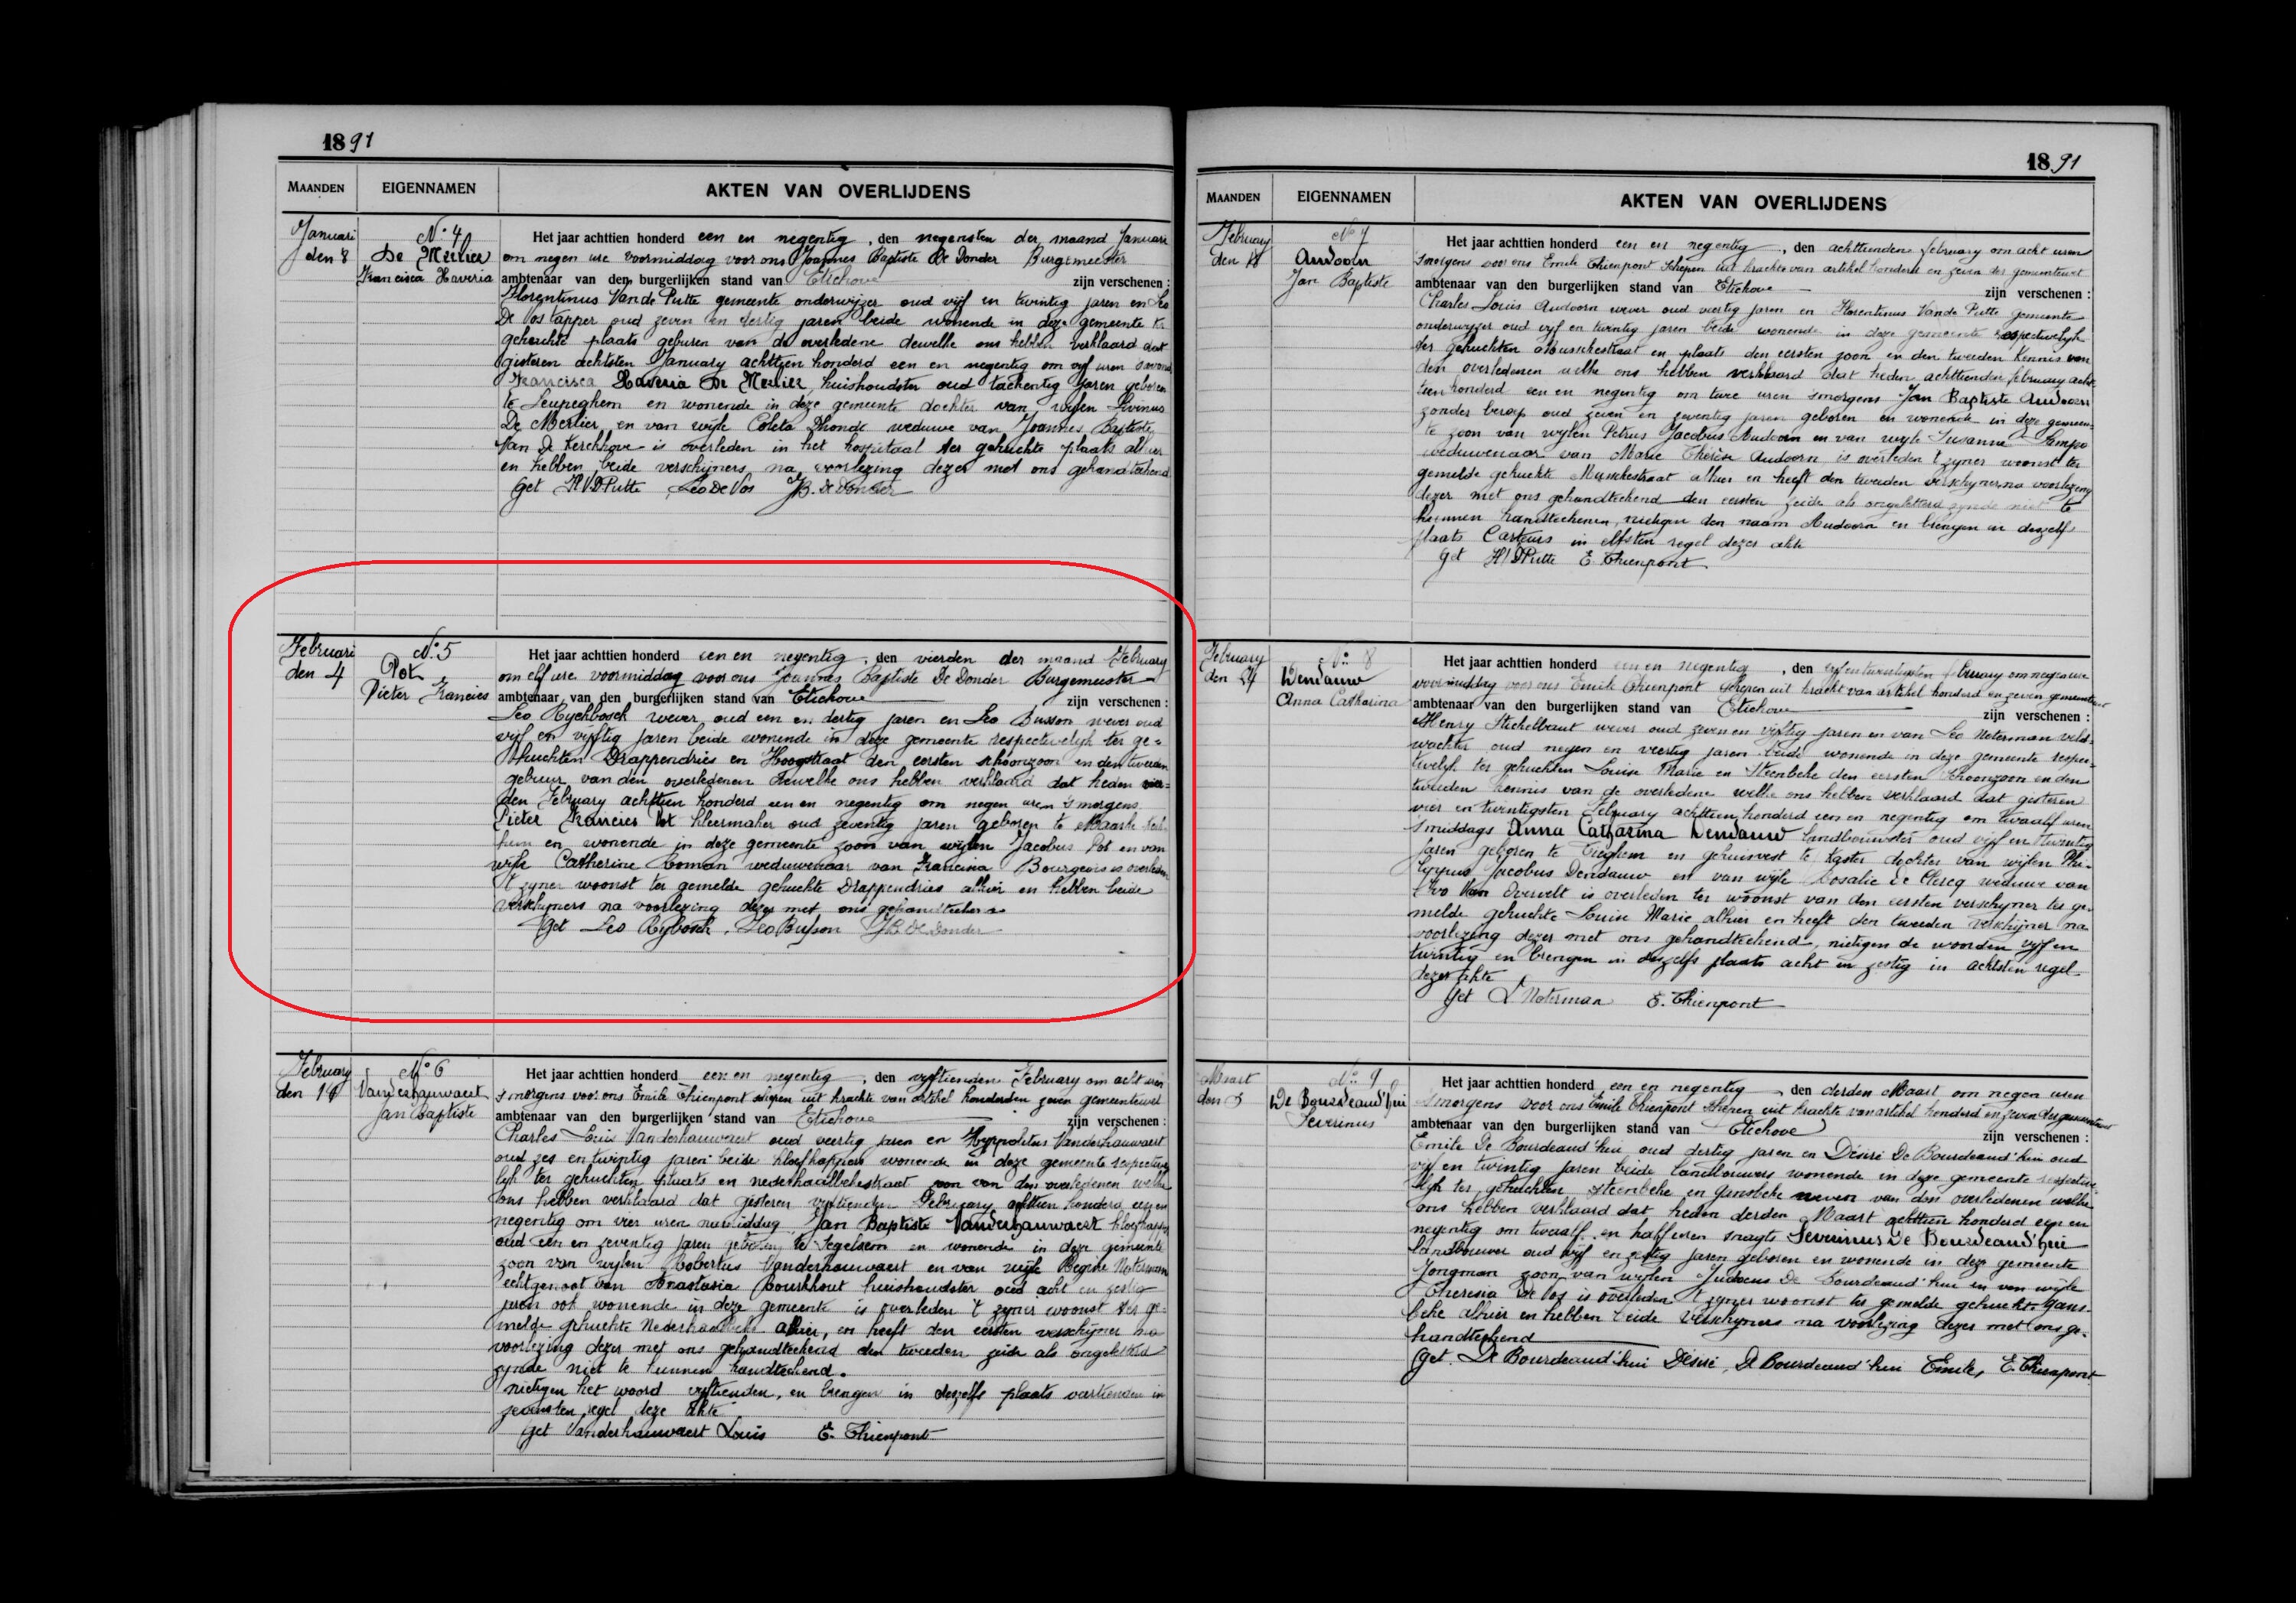 1891
MAANDEN EIGENNAMEN AKTEN VAN OVERLIJDENS
Januari den 8
N° 4
De Merlier
Francisca Xaveria
Het jaar achttien honderd een en negentig, den negensten der maand Januari
om negen ure voormiddag voor ons Joannes Baptiste De Donder Burgemeester
ambtenaar van den burgerlijken stand van Etichove zijn verschenen :
Florentinus Van de Putte gemeente onderwijzer oud vijf en twintig jaren en Leo
De Vos tapper oud zeven en dertig jaren beide wonende in deze gemeente ter
gehuchte plaats geburen van de overledene dewelke ons hebben verklaard dat
gisteren achtsten January achttien honderd een en negentig om vyf uren s'avonds
Francisca Xaveria De Merlier huishoudster oud tachentig jaren geboren
te Leupeghem en wonende in deze gemeente dochter van wylen Livinus
De Merlier en van wijle Coleta Dhondt weduwe van Joannes Baptiste
Van De Kerckhove is overleden in het hospitaal ter gehuchte plaats alhier
en hebben beide verschijners na voorlezing dezer met ons gehandteekend
Get H VDPutte Leo De Vos JB. De Donder
Februari
den 4
N° 5
Pot
Pieter Francies
Het jaar achttien honderd een en negentig, den vierden der maand February
om elf ure voormiddag voor ons Joannes Baptiste De Donder Burgemeester
ambtenaar van den burgerlijken stand van Etichove zijn verschenen :
Leo Ryckbosch wever oud een en dertig jaren en Leo Busson wever oud
vijf en vijftig jaren beide wonende in deze gemeente respectivelyk ter ge=
huchten Drappendries en Hoogstraat den eersten schoonzoon en den tweeden
gebuur van den overledenen dewelke ons hebben verklaard dat heden vier=
den February achttien honderd een en negentig om negen uren 's morgens
Pieter Francies Pot kleermaker oud zeventig jaren geboren te Maarke Kerk
hem en wonende in deze gemeente zoon van wijlen Jacobus Pot en van
wijle Catherine Coman weduwenaar van Francisca Bourgeois is overleden
't zyner woonst ter gemelde gehuchte Drappendries alhier en hebben beide
verschyners na voorlezing dezer met ons gehandteekend
Get Leo Rybosch, Leo Busson JB De Donder
February
den 16
N° 6
Vanderhauwaert
Jan Baptiste
Het jaar achttien honderd een en negentig, den vyftienden February om acht uren
s'morgens voor ons Emile Thienpont schepen uit krachte van artikel honderd en zeven gemeentewet
ambtenaar van den burgerlijken stand van Etichove zijn verschenen :
Charles Louis Vanderhauwaert oud veertig jaren en Hyppolitus Vanderhauwaert
oud zes en twintig jaren beide kloefkappers wonende in deze gemeente respective
lyk ter gehuchten plaats en nederhaalbekestraat zoon van den overledenen welke
ons hebben verklaard dat gisteren vyftienden February achttien honderd een en
negentig om vier uren namiddag Jan Baptiste Vanderhauwaert kloefkapper
oud een en zeventig jaren geboren te Segelsem en wonende in deze gemeente
zoon van wylen Robertus Vanderhauwaert en van wyle Regine Noterman
echtgenoot van Anastasia Bourkhout huishoudster oud acht en zestig
jaren ook wonende in deze gemeente is overleden 't zyner woonst ter ge-
melde gehuchte Nederhaalbeke alhier, en heeft den eersten verschijner na
voorlezing dezer met ons gehandteekend den tweeden zeide als ongeletterd
zynde niet te kunnen handteekend.
nietigen het woord vyftienden, en brengen in dezelfs plaats veertienden in
zevensten regel deze akte
Get Vanderhauwaert Louis E. Thienpont
1891
MAANDEN EIGENNAMEN AKTEN VAN OVERLIJDENS
February
den 18
N° 7
Audoorn
Jan Baptiste
Het jaar achttien honderd een en negentig, den achttienden february om acht uren
smorgens voor ons Emile Thienpont schepen uit krachte van artikel honderd en zeven der gemeentewet
ambtenaar van den burgerlijken stand van Etichove zijn verschenen :
Charles Louis Audoorn wever oud veertig jaren en Florentinus Vande Putte gemeente
onderwyzer oud vyf en twintig jaren beide wonende in deze gemeente respectivelyk
ter gehuchten Musschestraat en plaats den eersten zoon en den tweeden kennis van
den overledenen welke ons hebben verklaard dat heden achttienden february acht-
tien honderd een en negentig om twee uren smorgens Jan Baptiste Audoorn
zonder beroep oud zeven en zeventig jaren geboren en wonende in deze gemeen-
te zoon van wylen Petrus Jacobus Audoorn en van wyle Susanne Lampo
weduwenaar van Marie Thérèse Audoorn is overleden 't zyner woonst ter
gemelde gehuchte Musschestraat alhier en heeft den tweeden verschyner na voorlezing
dezer met ons gehandteekend den eersten zeide als ongeletterd zynde niet te
kunnen handteekenen, nietigen den naam Audoorn en brengen in dezelf
plaats Casteurs in elfsten regel dezer akte
Get H VDPutte E. Thienpont
February
den 24
N° 8
Dendauw
Anna Catharina
Het jaar achttien honderd een en negentig, den vyfentwintigsten february om negen ure
voormiddag voor ons Emile Thienpont schepen uit kracht van artikel honderd en zeven gemeentewet
ambtenaar van den burgerlijken stand van Etichove zijn verschenen :
Henry Stichelbaut wever oud zeven en vijftig jaren en van Leo Noterman veld-
wachter oud negen en veertig jaren beide wonende in deze gemeente respec-
tivelyk ter gehuchten Louise Marie en Steenbeke den eersten schoonzoon en den
tweeden kennis van de overledene welke ons hebben verklaard dat gisteren
vier en twintigsten february achttien honderd een en negentig om twaalf uren
s'middags Anna Catharina Dendauw landbouwster oud vijf en twintig
jaren geboren te Tieghem en gehuisvest te Kaster dochter van wijlen Phi-
lippus Jacobus Dendauw en van wijle Rosalie De Clercq weduwe van
Ivo Van Overvelt is overleden ter woonst van den eersten verschyner ter ge-
melde gehuchte Louise Marie alhier en heeft den tweeden verschijner na
voorlezing dezer met ons gehandteekend, nietigen de woorden vyf en
twintig en brengen in dezelfs plaats acht en zestig in achtsten regel
dezer akte
Get L Noterman E. Thienpont
Maart
den 3
N° 9
De Bourdeaud'hui
Severinus
Het jaar achttien honderd een en negentig den derden Maart om negen uren
smorgens voor ons Emile Thienpont schepen uit krachte van artikel honderd en zeven der gemeentewet
ambtenaar van den burgerlijken stand van Etichove zijn verschenen :
Emile De Bourdeaud'hui oud dertig jaren en Désiré De Bourdeaud'hui oud
vijf en twintig jaren beide landbouwers wonende in deze gemeente respective-
lyk ter gehuchten Steenbeke en Gansbeke neven van den overledenen welke
ons hebben verklaard dat heden derden Maart achttien honderd een en
negentig om twaalf en half uren snagts Severinus De Bourdeaud'hui
landbouwer oud vijf en zestig jaren geboren en wonende in deze gemeente
Jongman zoon van wylen Judocus De Bourdeaud'hui en van wijle
Theresia De Vos is overleden 't zyner woonst ter gemelde gehucht Gans-
beke alhier en hebben beide verschyners na voorlezing dezer met ons ge-
handteekend
Get. De Bourdeaud'hui Désiré, De Bourdeaud'hui Emile, E. Thienpont